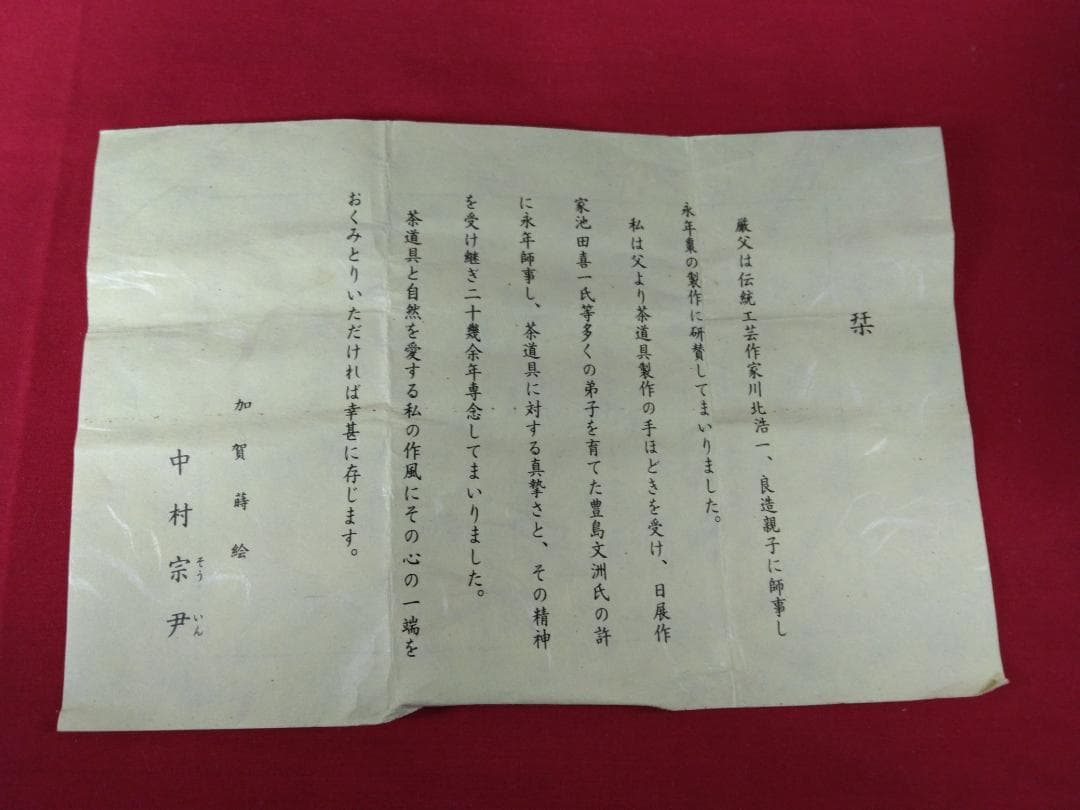 栞
厳父は伝統工芸作家川北浩一、良造親子に師事し
永年棗の製作に研賛してまいりました。
私は父より茶道具製作の手ほどきを受け、日展作
家池田喜一氏等多くの弟子を育てた豊島文洲氏の許
に永年師事し、茶道具に対する真摯さと、その精神
を受け継ぎ二十幾余年専念してまいりました。
茶道具と自然を愛する私の作風にその心の一端を
おくみとりいただければ幸甚に存じます。
加賀蒔絵
中村宗尹
そういん